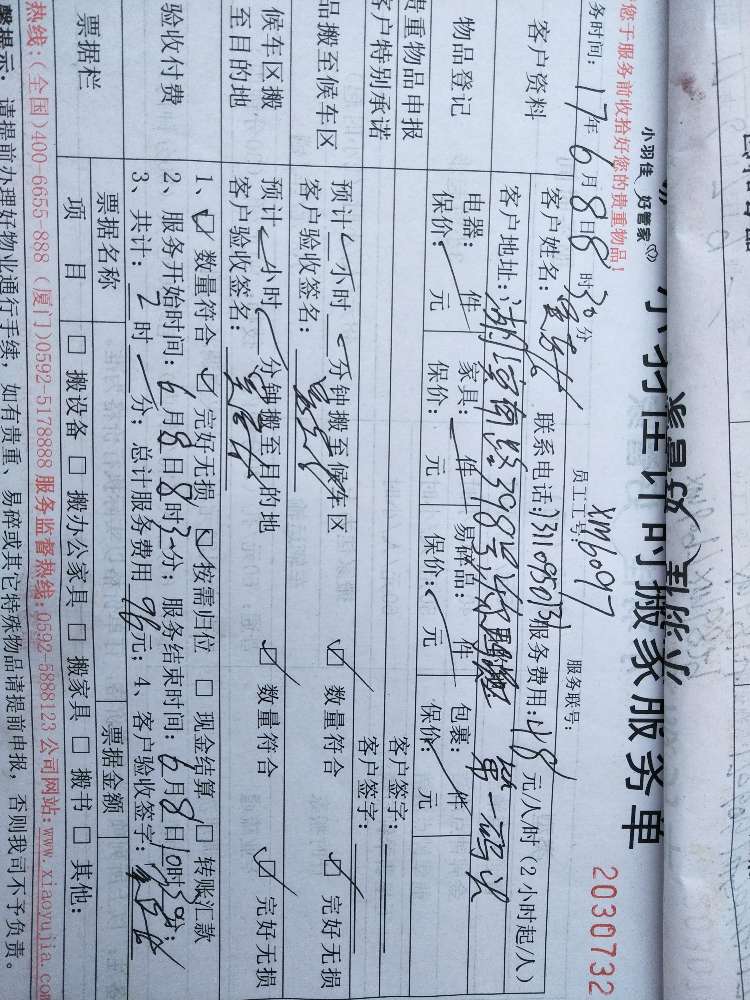 小羽佳 好管家
小羽佳计时搬家服务单
2030732
您于服务前收拾好您的贵重物品!
员工工号: xm6097
服务联号:
务时间: 17年 6月 8日 8时 30分
客户资料
客户姓名: 联系电话: 服务费用: 48元/人/时 (2小时起/人)
客户地址: 湖滨南路398号 第一码头
物品登记
电器: 件 家具: 件 易碎品: 件 包裹: 件
保价: 元 保价: 元 保价: 元 保价: 元
贵重物品申报
客户签字:
客户特别承诺
客户签字:
品搬至候车区
预计 小时 分钟搬至候车区 数量符合 完好无损
客户验收签名:
候车区搬至目的地
预计 小时 分钟搬至目的地 数量符合 完好无损
客户验收签名:
验收付费
1、 数量符合 完好无损 按需归位 □ 现金结算 □ 转账汇款
2、服务开始时间: 6月8日8时30分; 服务结束时间: 6月8日10时30分;
3、共计: 2时 分; 总计服务费用 96元; 4、客户验收签字:
票据栏
票据名称 票据金额
项 目 □ 搬设备 □ 搬办公家具 □ 搬家具 □ 搬书 □ 其他:
热线:(全国)400-6655-888 (厦门)0592-5178888 服务监督热线:0592-5888123 公司网站:www.xiaoyujia.co
馨提示: 请提前办理好物业通行手续, 如有贵重、易碎或其它特殊物品请提前申报, 否则我司不予负责。